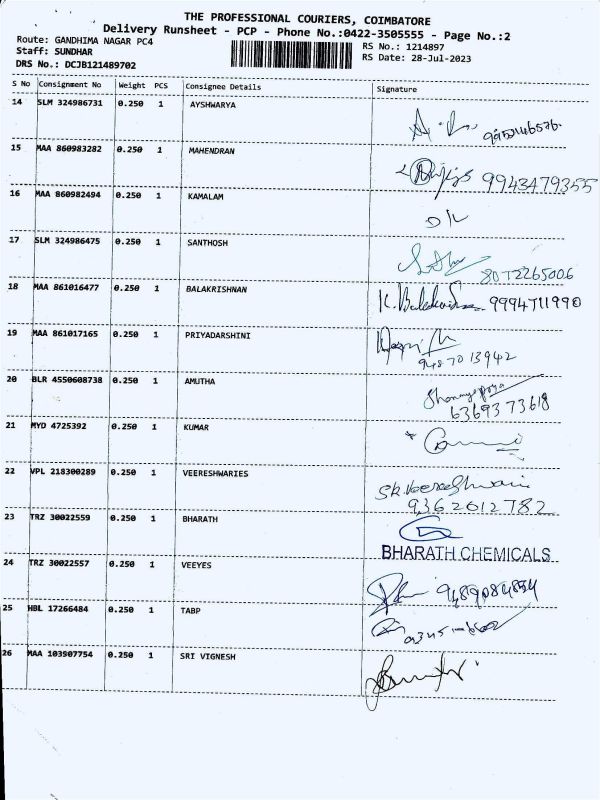 THE PROFESSIONAL COURIERS, COIMBATORE
Delivery Runsheet - PCP - Phone No.:0422-3505555 - Page No.:2
Route: GANDHIMA NAGAR PC4
RS No.: 1214897
Staff: SUNDHAR
RS Date: 28-Jul-2023
DRS No.: DCJB121489702
S No Consignment No Weight PCS Consignee Details Signature
14 SLM 324986731 0.250 1 AYSHWARYA
15 MAA 860983282 0.250 1 MAHENDRAN
9943479355
16 MAA 860982494 0.250 1 KAMALAM
17 SLM 324986475 0.250 1 SANTHOSH
8072265006
18 MAA 861016477 0.250 1 BALAKRISHNAN
K. Balakrishnan 9994711990
19 MAA 861017165 0.250 1 PRIYADARSHINI
9487013942
20 BLR 4550608738 0.250 1 AMUTHA
Shanmugapriya
6369373618
21 MYD 4725392 0.250 1 KUMAR
22 VPL 218300289 0.250 1 VEERESHWARIES
SK.Veereshwari
9362612782
23 TRZ 30022559 0.250 1 BHARATH
BHARATH CHEMICALS
24 TRZ 30022557 0.250 1 VEEYES
9489084854
25 HBL 17266484 0.250 1 TABP
26 MAA 103907754 0.250 1 SRI VIGNESH